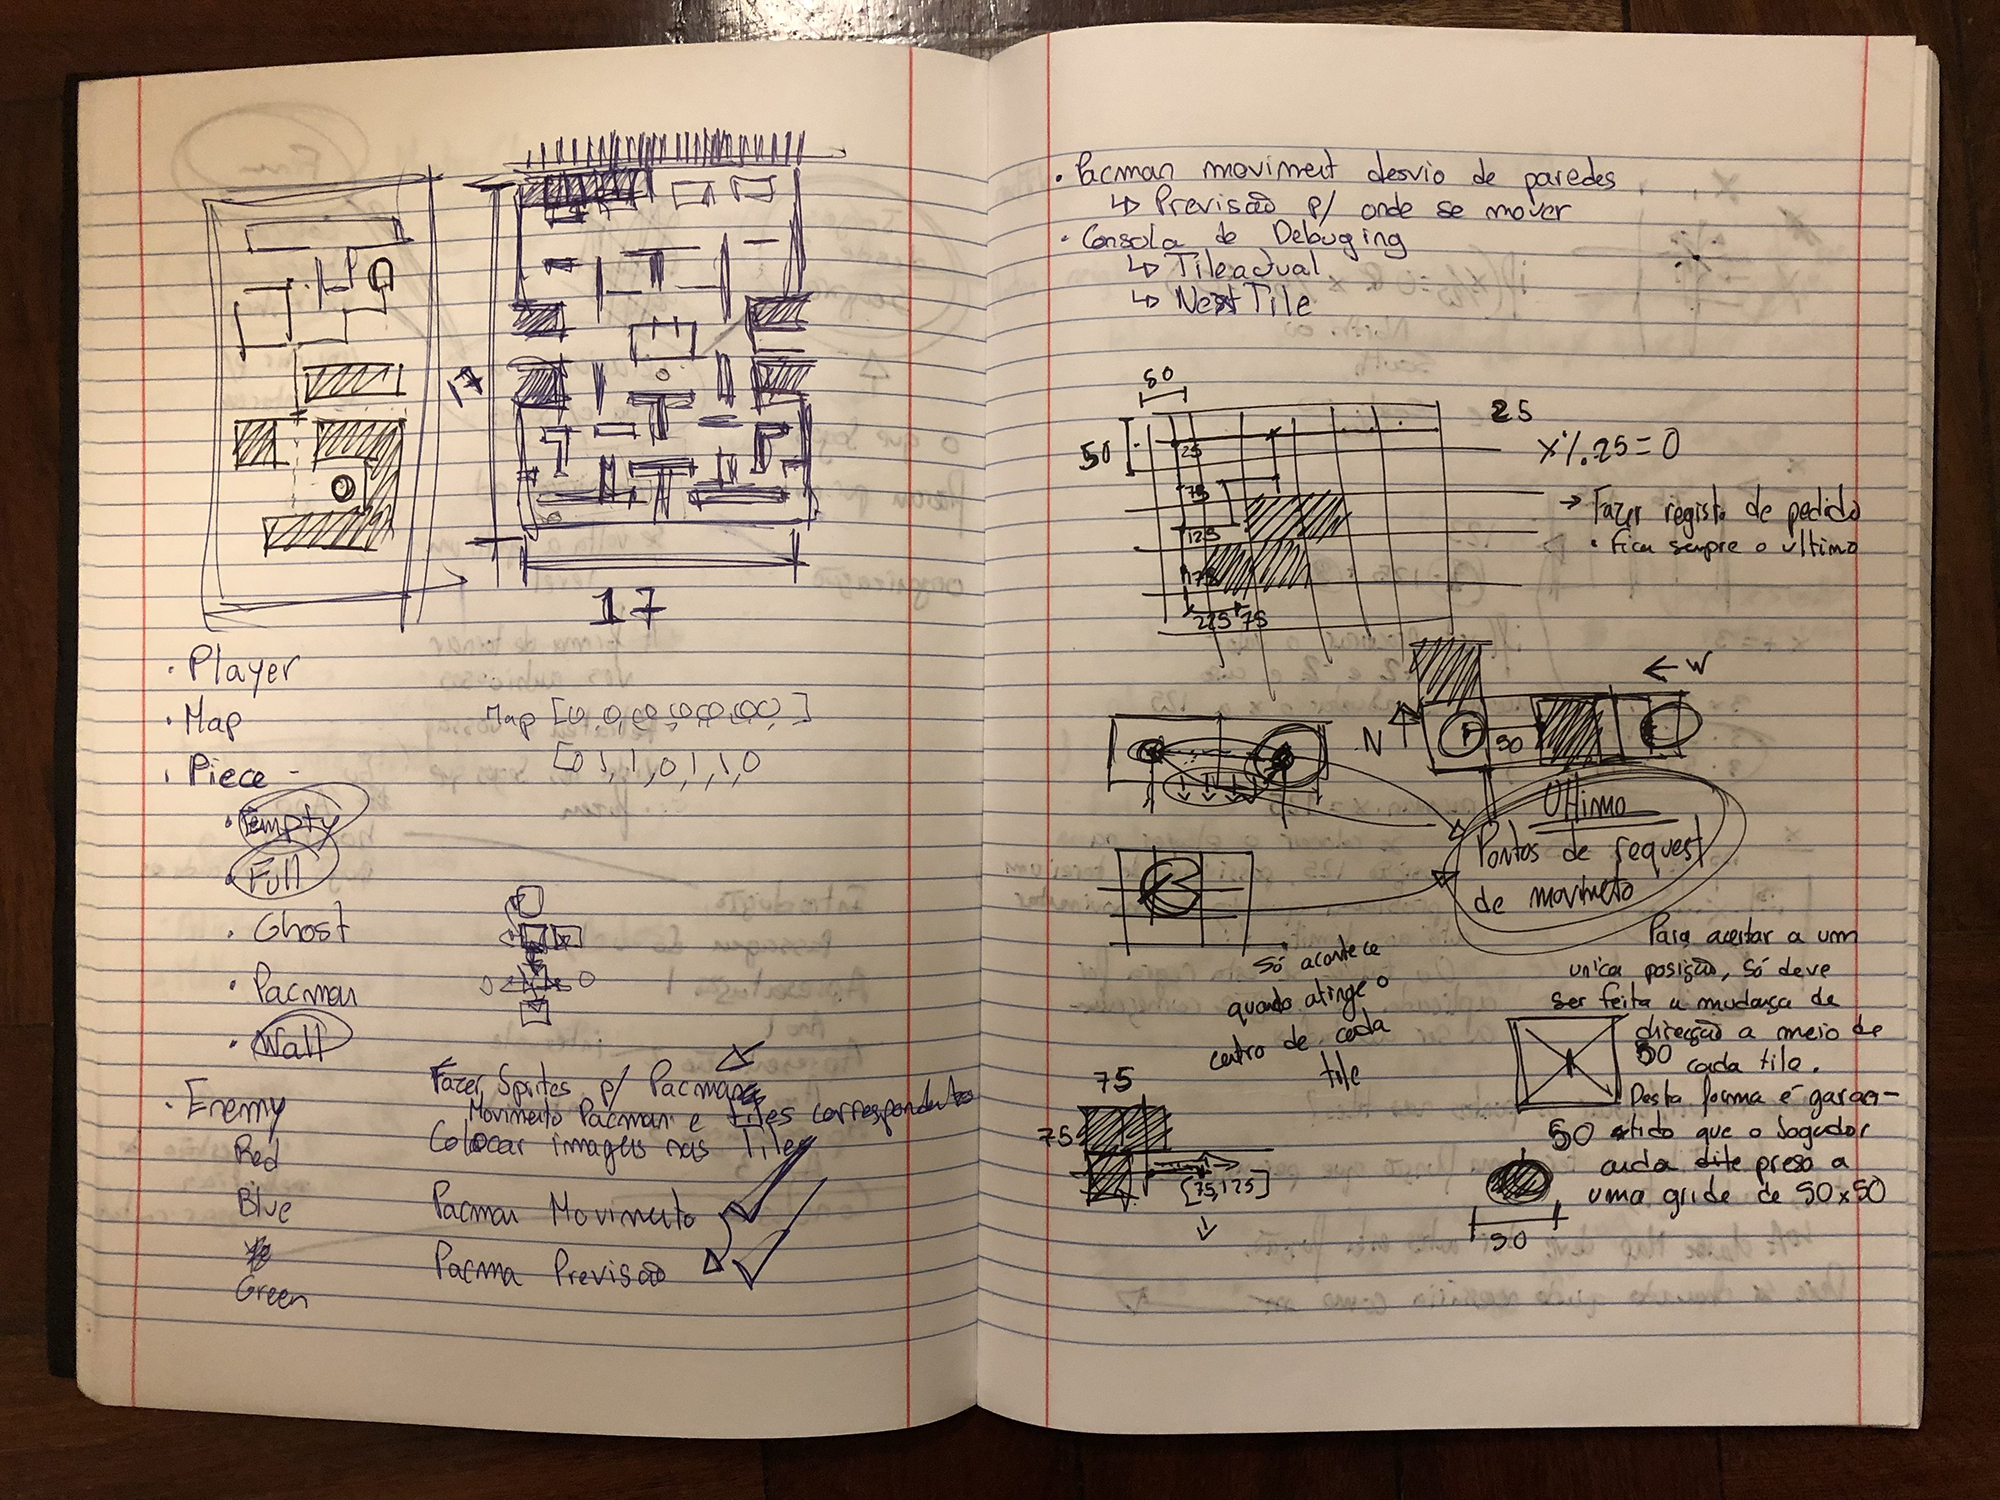 17
17
· Player
· Map
Map [0,0,0,0,0,0,0,]
[0 1,1,0,1,1,0
· Piece -
· Empty
· Full
· Ghost
· Pacman
· Wall
· Enemy
Red
Blue
Green
Fazer Sprites p/ Pacman
Movimento Pacman e tiles correspondentes
Colocar imagens nas Tiles
Pacman Movimento
Pacma Previsão
· Pacman moviment desvio de paredes
↳ Previsão p/ onde se mover
· Consola de Debuging
↳ Tile actual
↳ Next Tile
50
50
25
75
125
175
225 75
25
X%.25=0
→ Fazer registo de pedido
· fica sempre o ultimo
← W
N
50
Ultimo
Pontos de request
de movimeto
Só acontece
quando atinge o
centro de cada
tile
Para acertar a um
unica posição, só deve
ser feita a mudança de
direcção a meio de
cada tile.
Desta forma é garan-
tido que o Jogador
anda dite preso a
uma gride de 50x50
50
50
50
75
75
[75,125]